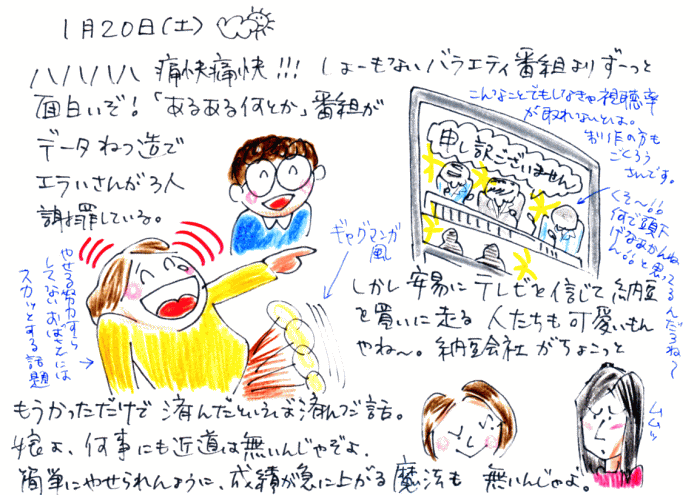 1月20日(土)
ハハハハ 痛快痛快!!! しょーもないバラエティ番組よりずーっと
面白いぞ!「あるある何とか」番組が
データねつ造で
エラいさんが3人
謝罪している。
こんなことでもしなきゃ視聴率
が取れないとは。
制作の方も
ごくろう
さんです。
申し訳ございません
くそ〜!!
何で頭下
げなあかんね
ん!!と思ってるんだろね〜
ギャグマンガ
風
やせる努力すら
してない、おばさんには
スカッとする話題
しかし安易にテレビを信じて納豆
を買いに走る人たちも可愛いもん
やね〜。納豆会社がちょこっと
もうかっただけで済んだといえば済んだ話。
娘よ、何事にも近道は無いんじゃぞよ、
簡単にやせられんように、成績が急に上がる魔法も無いんじゃよ。
ムムッ